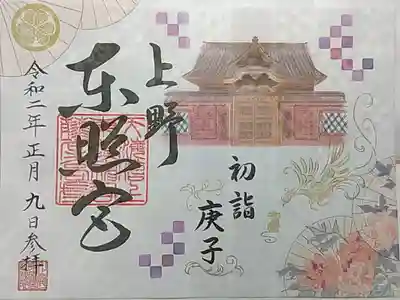 初詣
庚子
上野
東照宮
令和二年正月九日参拝